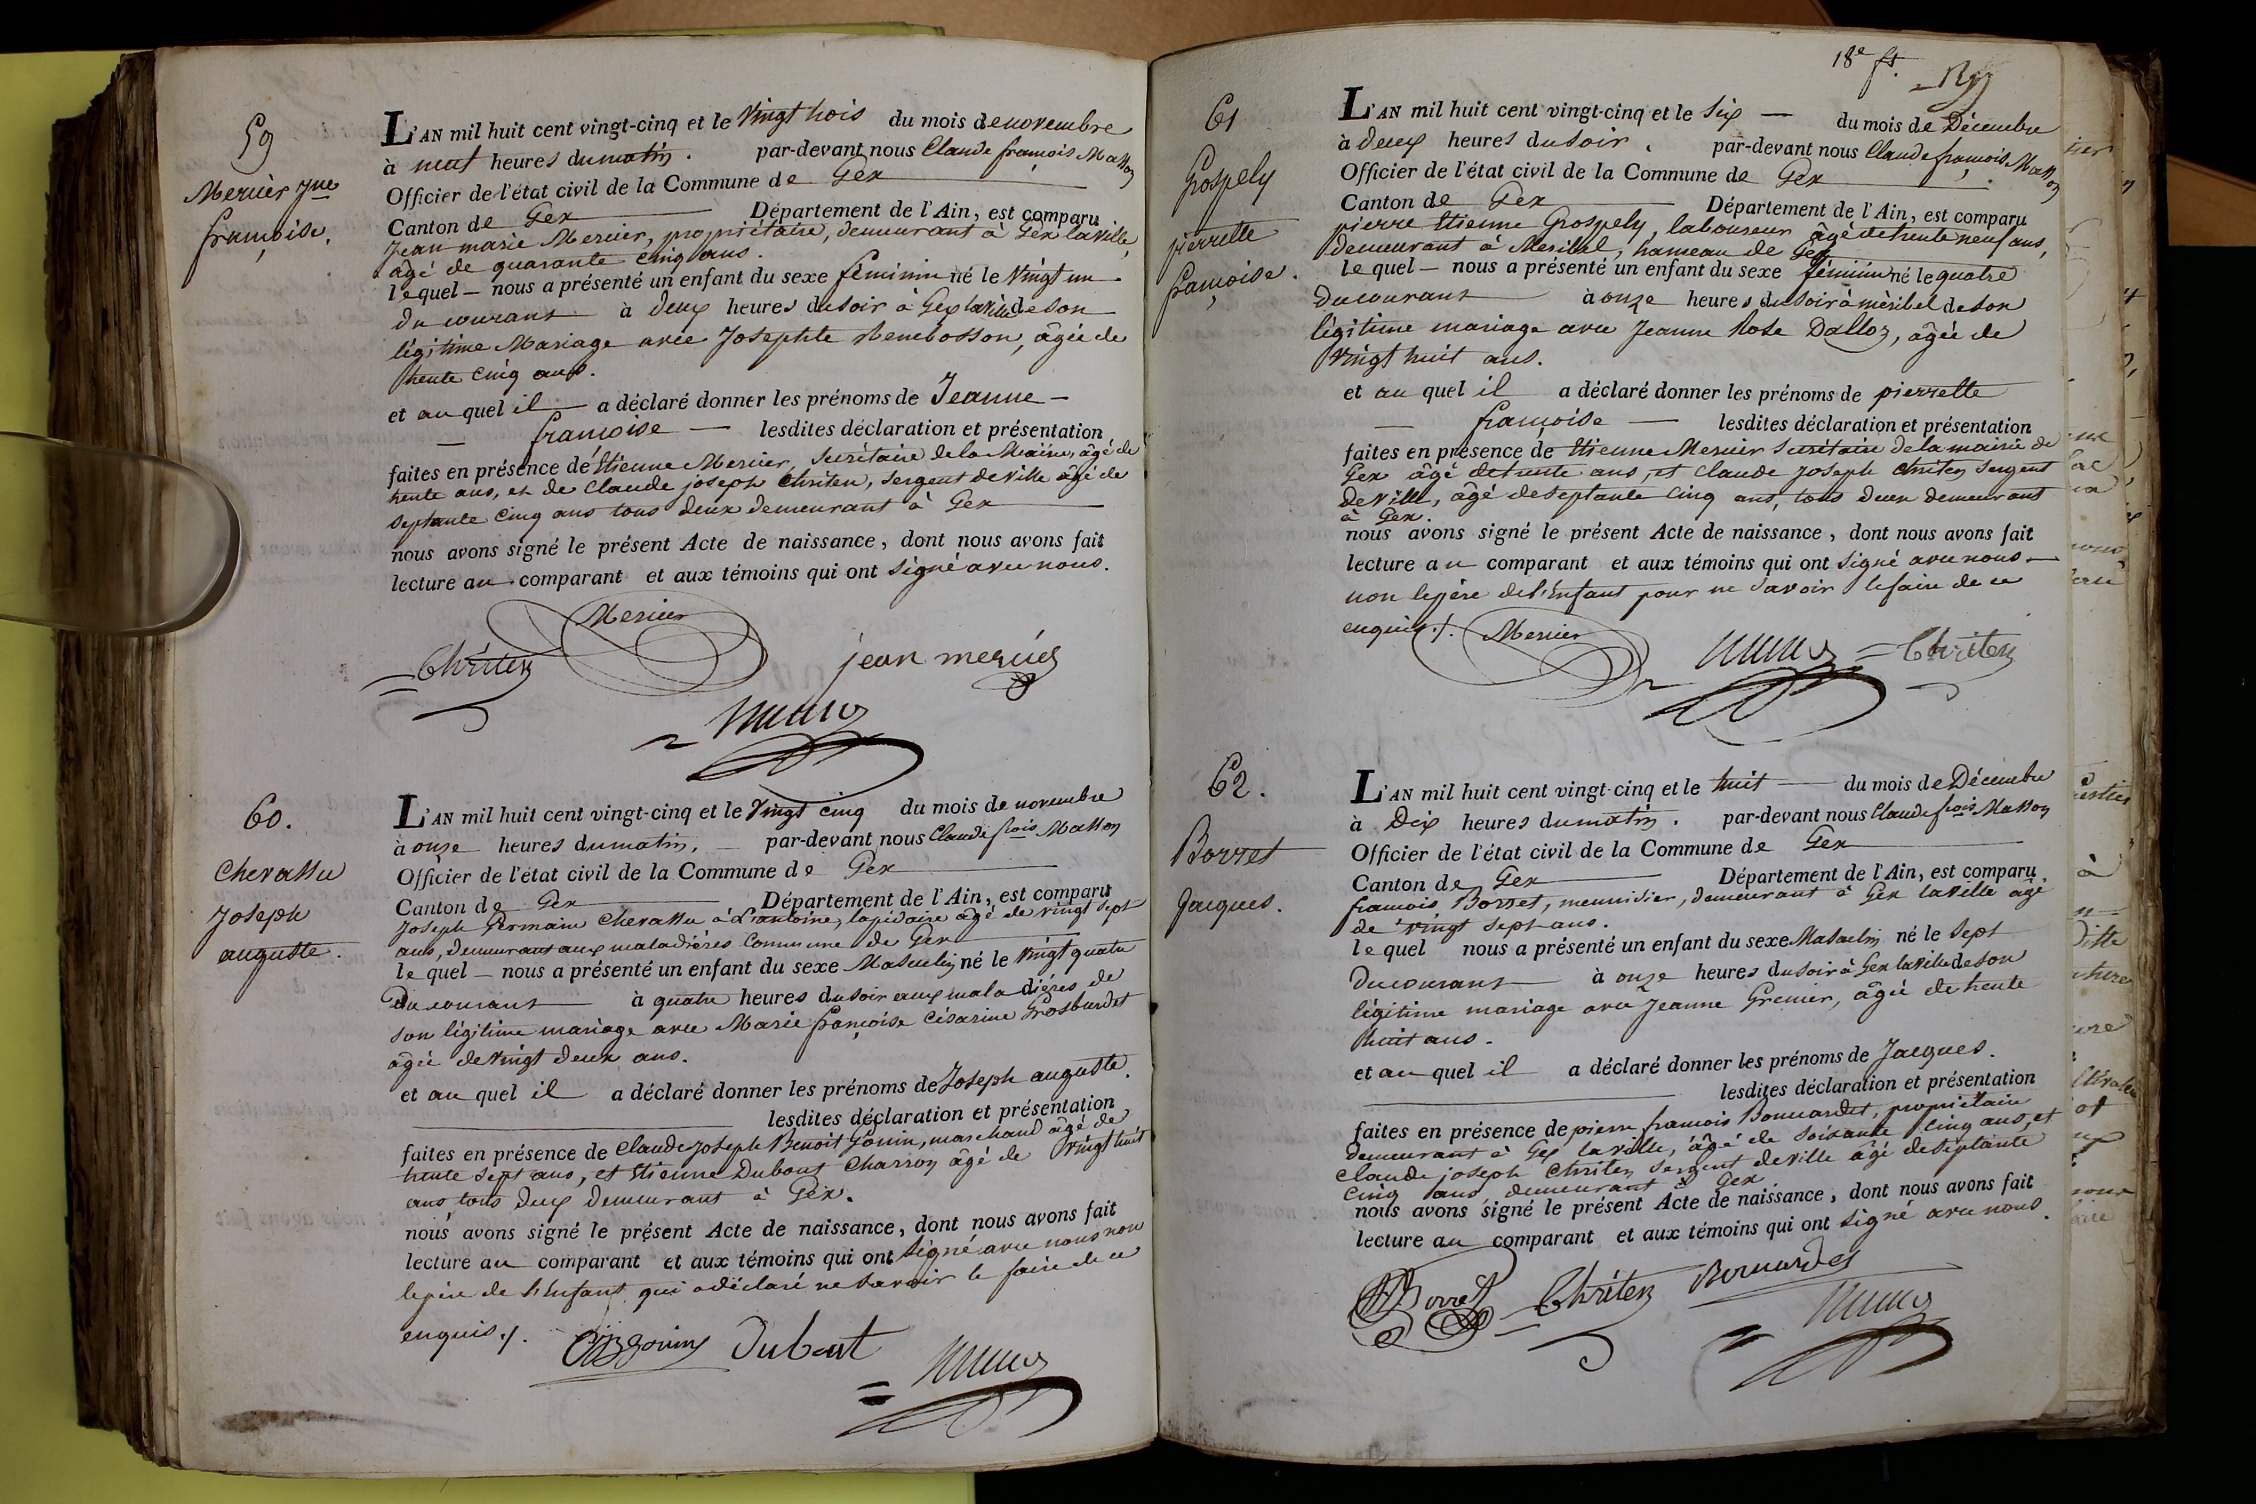 59
Mercier Jne
françoise.
L'AN mil huit cent vingt-cinq et le Vingt trois du mois de novembre
à neuf heures du matin. par-devant nous Claude françois Masson
Officier de l'état civil de la Commune de Gex
Canton de Gex Département de l'Ain, est comparu
Jean marie Mercier, propriétaire, demeurant à Gex la ville,
âgé de quarante cinq ans.
lequel nous a présenté un enfant du sexe féminin né le Vingt un
du courant à deux heures du soir à Gex la ville de son
légitime Mariage avec Josephte, âgée de
trente cinq ans.
et au quel il a déclaré donner les prénoms de Jeanne
françoise lesdites déclaration et présentation
faites en présence de Etienne Mercier, Secrétaire de la Mairie, âgé de
trente ans, et de Claude joseph Chriten, Sergent de ville âgé de
septante cinq ans tous deux demeurant à Gex
nous avons signé le présent Acte de naissance, dont nous avons fait
lecture au comparant et aux témoins qui ont signé avec nous.
Mercier
Chriten jean mercier
60.
Chevassu
Joseph
auguste.
L'AN mil huit cent vingt-cinq et le Vingt cinq du mois de novembre
à onze heures du matin, par-devant nous Claude fçois Masson
Officier de l'état civil de la Commune de Gex
Canton de Gex Département de l'Ain, est comparu
Joseph Germain Chevassu à L'antoine, lapidaire âgé de vingt sept
ans, demeurant aux maladières Commune de Gex
lequel nous a présenté un enfant du sexe Masculin né le Vingt quatre
Du courant à quatre heures du soir aux maladières de
son légitime mariage avec Marie françoise Césarine Grosburdet
âgée de Vingt deux ans.
et au quel il a déclaré donner les prénoms de Joseph auguste.
lesdites déclaration et présentation
faites en présence de Claude Joseph Benoit Gonin, marchand âgé de
trente sept ans, et Etienne Dubout Charron âgé de Vingt huit
ans, tous deux demeurant à Gex.
nous avons signé le présent Acte de naissance, dont nous avons fait
lecture au comparant et aux témoins qui ont signé avec nous non
le père de l'Enfant qui a déclaré ne savoir le faire de ce
enquis ./.
Gonin Dubout
18e ft.
61
Grospely
pierrette
françoise.
L'AN mil huit cent vingt-cinq et le Six du mois de Décembre
à deux heures du soir. par-devant nous Claude françois Masson
Officier de l'état civil de la Commune de Gex
Canton de Gex Département de l'Ain, est comparu
pierre Etienne Grospely, laboureur âgé de trente neuf ans,
demeurant à Meribel, hameau de Gex
lequel nous a présenté un enfant du sexe féminin né le quatre
Du courant à onze heures du soir à méribel de son
légitime mariage avec Jeanne Rose Dalloz, âgée de
Vingt huit ans.
et au quel il a déclaré donner les prénoms de pierrette
françoise lesdites déclaration et présentation
faites en présence de Etienne Mercier Secrétaire de la mairie de
Gex âgé de trente ans, et Claude Joseph Chriten Sergent
De Ville, âgé de septante cinq ans, tous deux demeurant
à Gex.
nous avons signé le présent Acte de naissance, dont nous avons fait
lecture au comparant et aux témoins qui ont signé avec nous
non le père de l'Enfant pour ne Savoir le faire de ce
enquis ./. Mercier
Chriten
62.
Borret
Jacques.
L'AN mil huit cent vingt-cinq et le huit du mois de Décembre
à Dix heures du matin. par-devant nous Claude fçois Masson
Officier de l'état civil de la Commune de Gex
Canton de Gex Département de l'Ain, est comparu
françois Borret, meunisier, demeurant à Gex la Ville âgé
de vingt sept ans.
lequel nous a présenté un enfant du sexe Masculin né le Sept
Du courant à onze heures du soir à Gex la Ville de son
légitime mariage avec Jeanne Grenier, âgée de trente
huit ans.
et au quel il a déclaré donner les prénoms de Jacques.
lesdites déclaration et présentation
faites en présence de pierre francois Bouvardet, propriétaire
demeurant à Gex la ville, âgé de soixante cinq ans, et
Claude joseph Chriten Sergent de ville âgé de septante
Cinq ans, demeurant à Gex
nous avons signé le présent Acte de naissance, dont nous avons fait
lecture au comparant et aux témoins qui ont signé avec nous.
Borret Chriten